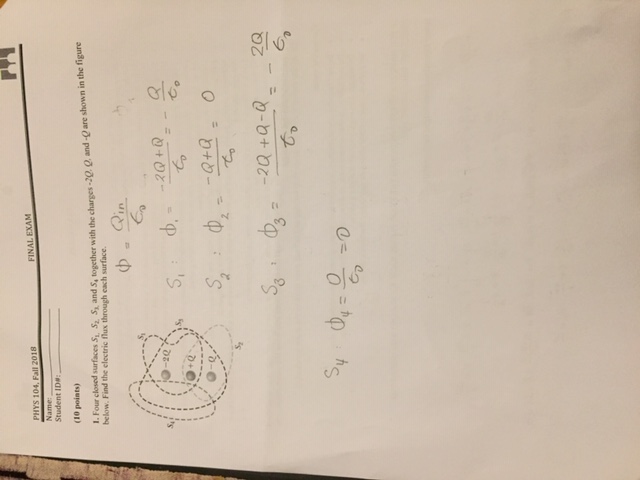 PHYS 104, Fall 2018
FINAL EXAM
Name:
Student ID#:
(10 points)
1. Four closed surfaces S₁, S₂, S₃ and S₄ together with the charges -2Q, Q, and -Q are shown in the figure
below. Find the electric flux through each surface.
S₁
S₄
-2Q
S₃
+Q
-Q
S₂
Φ = Qin/ε₀
S₁ : Φ₁ = -2Q+Q/ε₀ = - Q/ε₀
S₂ : Φ₂ = -Q+Q/ε₀ = 0
S₃ : Φ₃ = -2Q+Q-Q/ε₀ = - 2Q/ε₀
S₄ Φ₄ = 0/ε₀ = 0